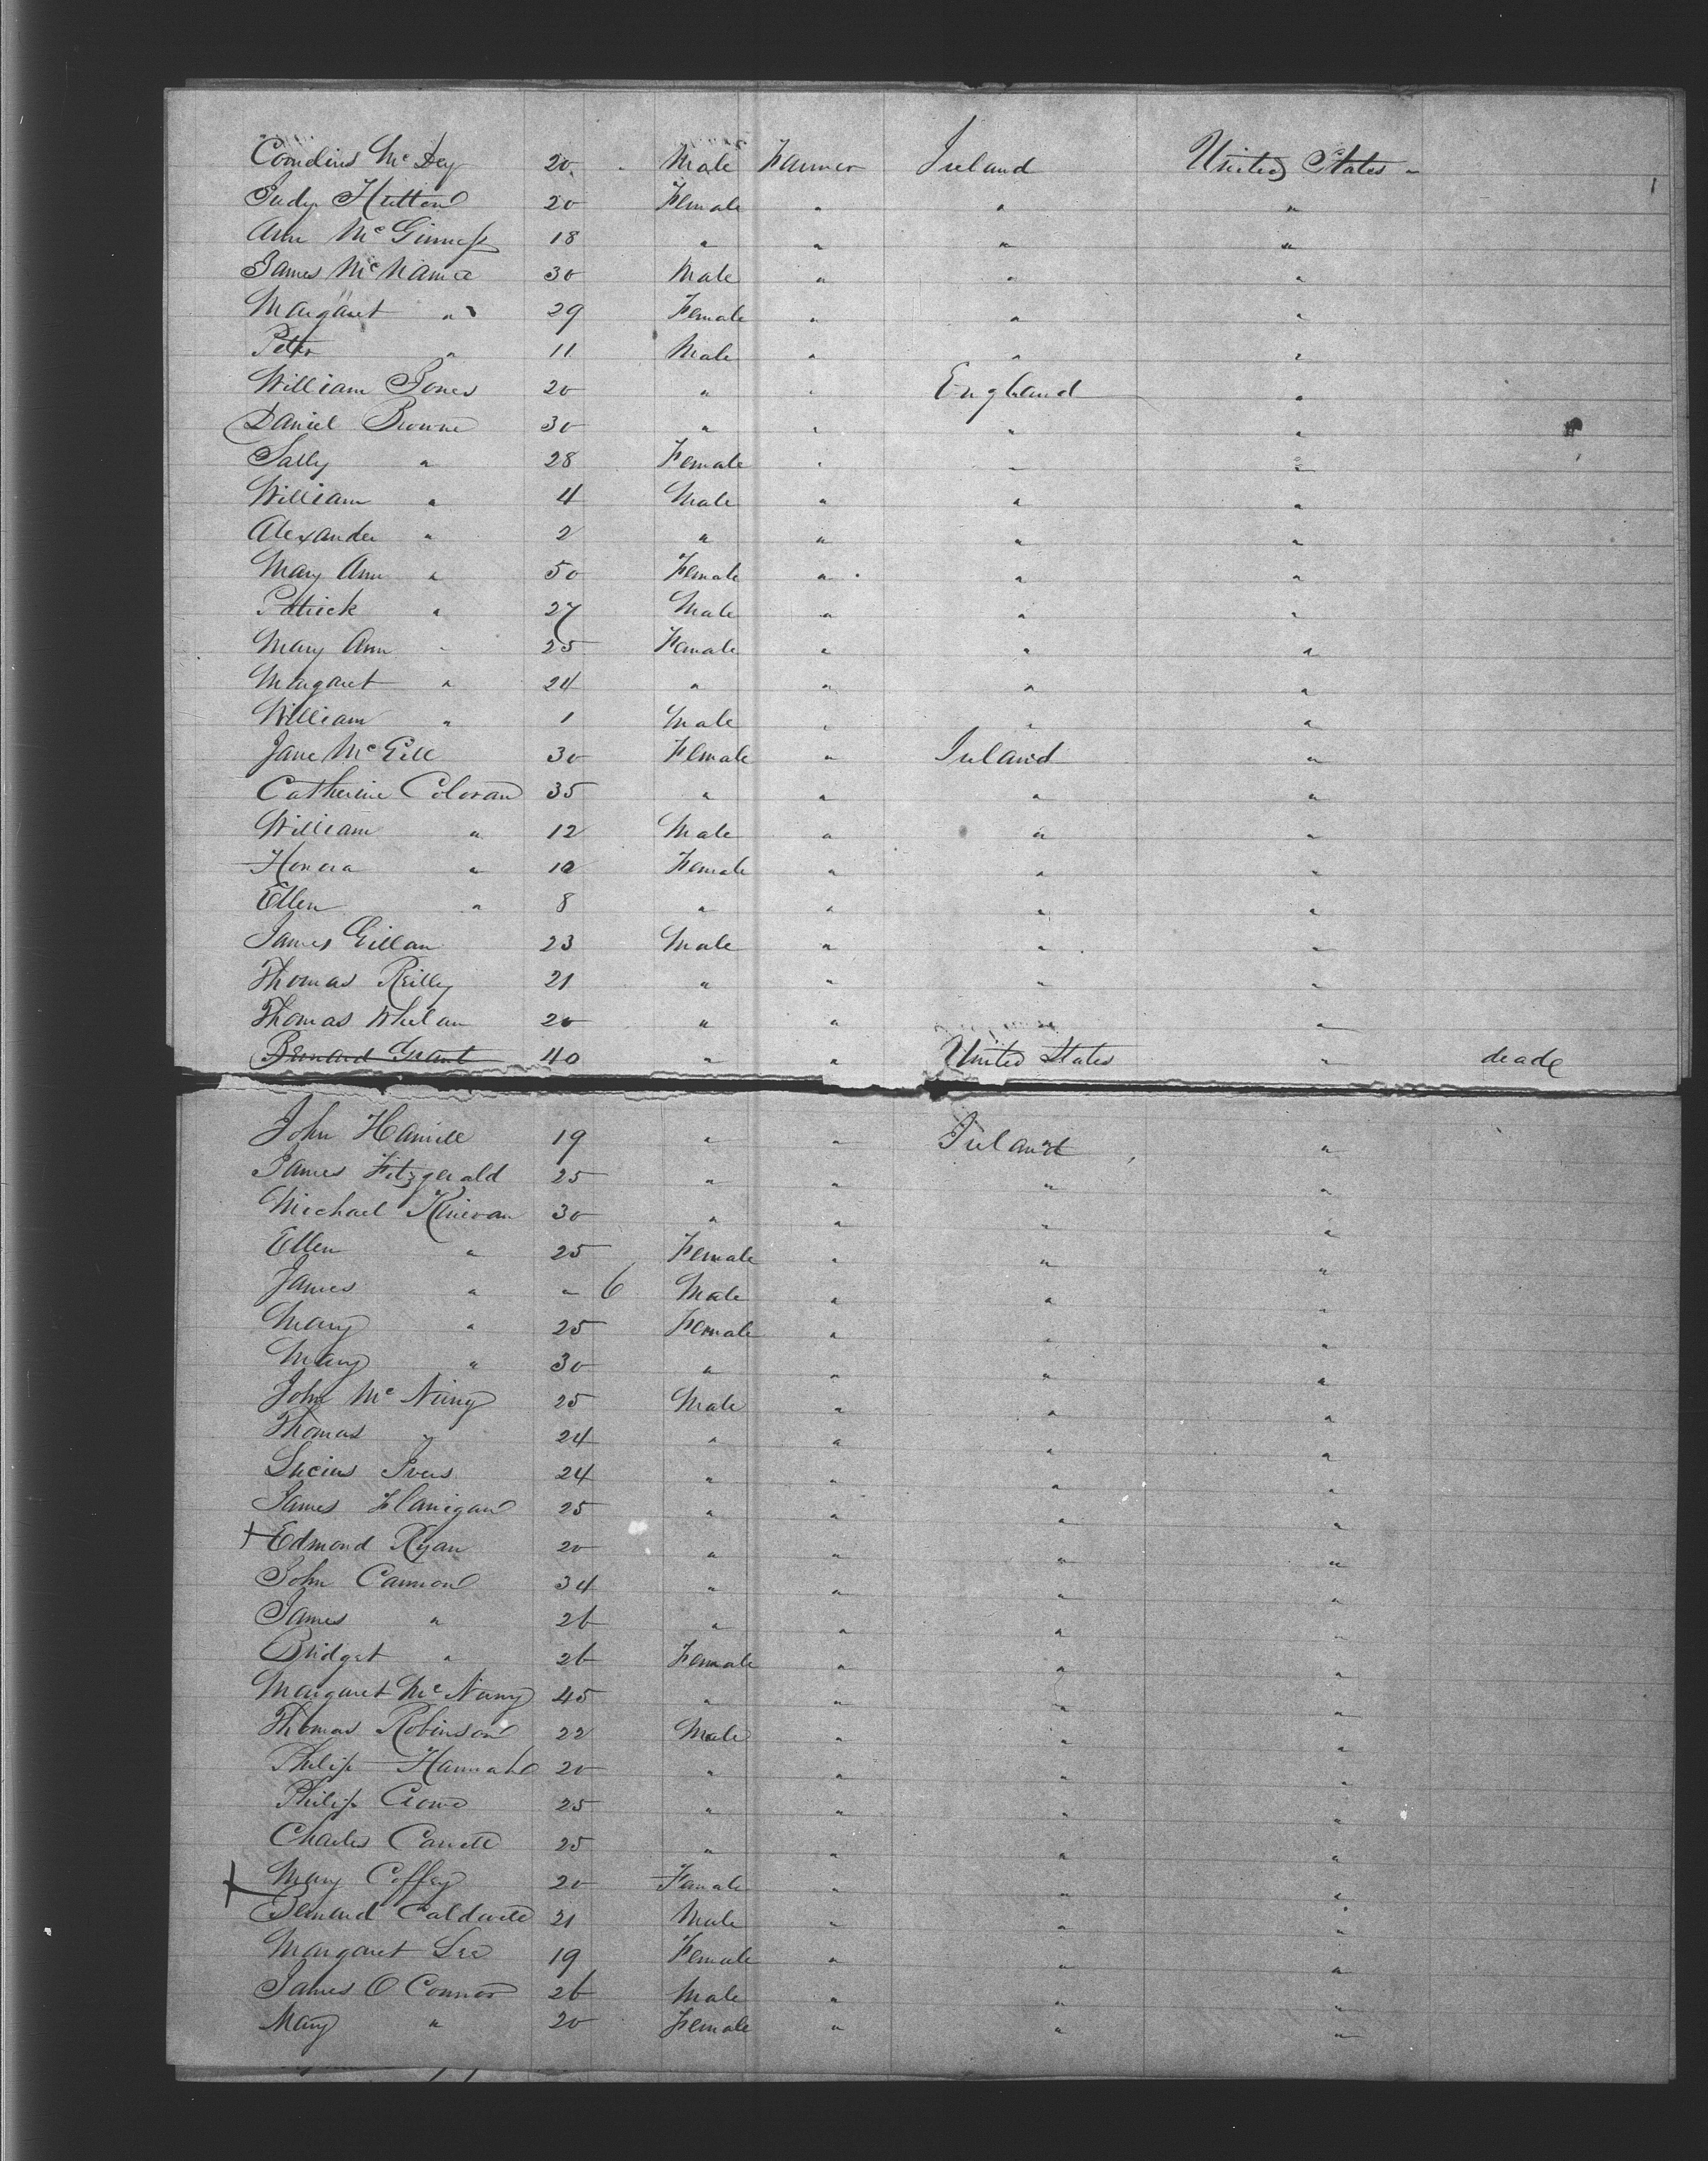 Cornelius McDey 20 Male Farmer Ireland United States "
Judy Hutton 20 Female " " "
Ann McGinness 18 " " " "
James McNamee 30 Male " " "
Margaret " 29 Female " " "
Peter " 11 Male " " "
William Jones 20 " " England "
Daniel Browne 30 " " " "
Sally " 28 Female " " "
William " 4 Male " " "
Alexander " 2 " " " "
Mary Ann " 50 Female " " "
Patrick " 27 Male " " "
Mary Ann " 25 Female " " "
Margaret " 24 " " " "
William " 1 Male " " "
Jane McGill 30 Female " Ireland "
Catherine Coloran 35 " " " "
William " 12 Male " " "
Honora " 10 Female " " "
Ellen " 8 " " " "
James Gillan 23 Male " " "
Thomas Reilly 21 " " " "
Thomas Whelan 20 " " "
Bernard Grant 40 " " United States " dead
John Hamill 19 " " Ireland "
James Fitzgerald 25 " " " "
Michael Kinevan 30 " " " "
Ellen " 25 Female " " "
James " " 6 Male " " "
Mary " 25 Female " " "
Mary " 30 " " " "
John McNany 25 Male " " "
Thomas " 24 " " " "
Lucius Ivers 24 " " " "
James Flanigan 25 " " " "
+ Edmond Ryan 20 " " " "
John Cannon 34 " " " "
James " 26 " " " "
Bridget " 26 Female " " "
Margaret McNany 45 " " " "
Thomas Robinson 22 Male " " "
Philip Hannah 20 " " " "
Philip Crome 25 " " " "
Charles 25 " " " "
+ Mary Coffey 20 Female " " "
Bernard Caldwell 21 Male " " "
Margaret Lee 19 Female " " "
James O Connor 26 Male " " "
Mary " 20 Female " " "